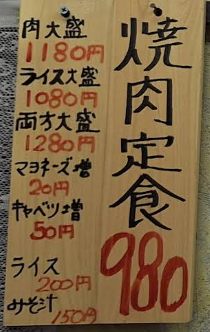 焼肉定食
980
肉大盛
1180円
ライス大盛
1080円
両方大盛
1280円
マヨネーズ増
20円
キャベツ増
50円
ライス
200円
みそ汁
150円